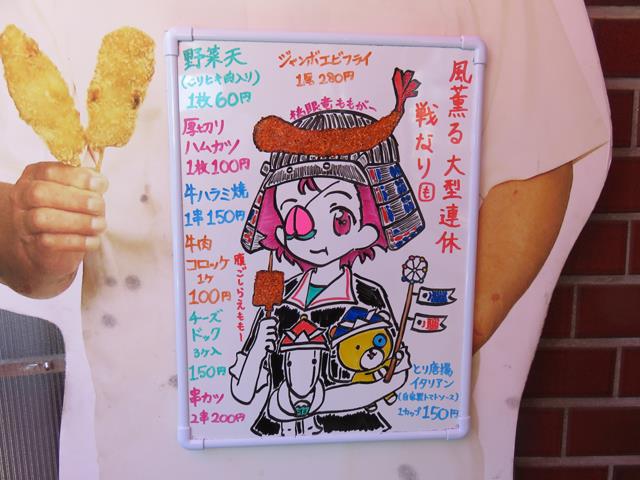 風薫る 大型連休
戦なり も
ジャンボエビフライ
1尾 280円
桃眼竜ももがー
野菜天
1枚60円
厚切り
ハムカツ
1枚100円
牛ハラミ焼
1串150円
牛肉
コロッケ
1ヶ
100円
チーズ
ドック
3ヶ入
150円
串カツ
2串200円
腹ごしらえももー
とり唐揚
イタリアン
(自家製トマトソース)
1カップ150円